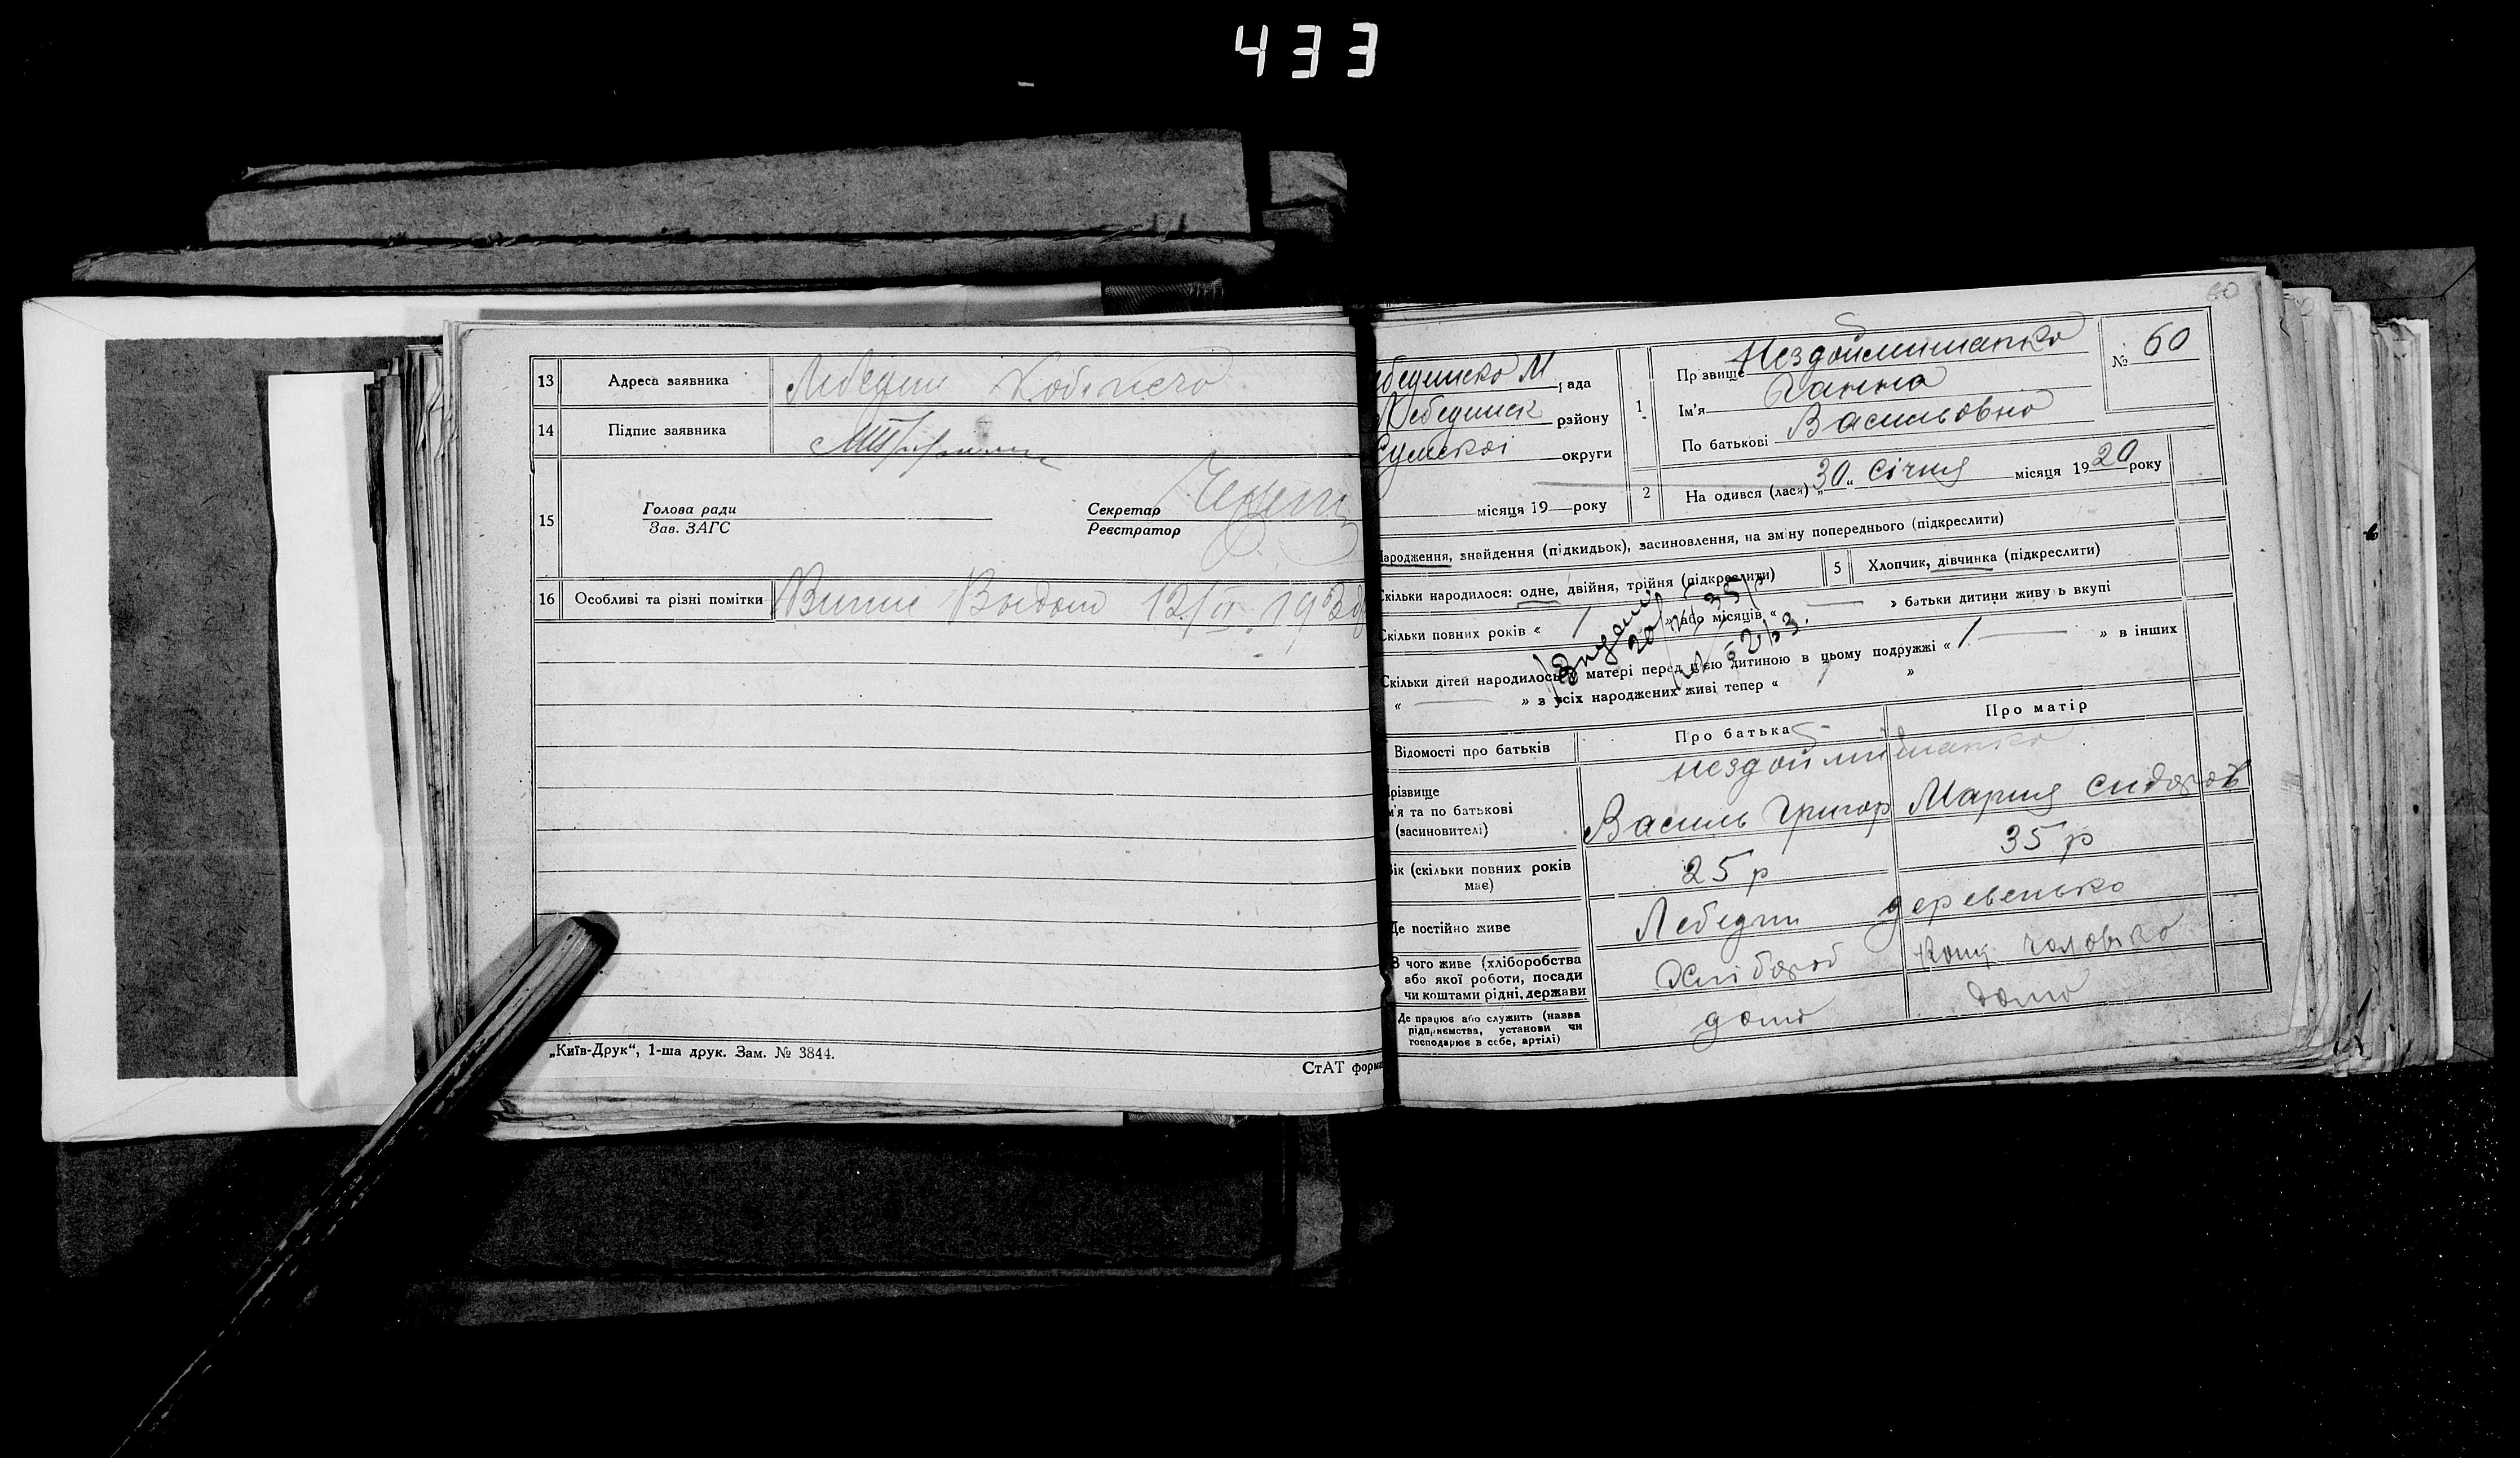 433
13 Адреса заявника Лебедин
14 Підпис заявника
15 Голова ради
Зав. ЗАГС
Секретар
Реєстратор
16 Особливі та різні помітки Випис 12/II
„Київ-Друк“, 1-ша друк. Зам. № 3844.
СтАТ форма
60
№ 60
бединско М рада
Лебединск району
Сумскоі округи
місяця 19 року
1 Прізвище Нездойминіапко
Ім’я Ганна
По батькові Васильовно
2 Народився (лася) „30“ січня місяця 1920 року
Народження, знайдення (підкидьок), засиновлення, на зміну попереднього (підкреслити)
Скільки народилося: одне, двійня, трійня (підкреслити)
5 Хлопчик, дівчинка (підкреслити)
Скільки повних років « 1 » або місяців « — » батьки дитини живуть вкупі
Скільки дітей народилось у матері перед цією дитиною в цьому подружжі « 1 — » в інших
« — » з усіх народжених живі тепер « »
Відомості про батьків
Про батька
Про матір
Прізвище
ім’я та по батькові
(засиновителі)
Василь Григор
Мария Сидоров
Вік (скільки повних років має)
25 р
35 р
Де постійно живе
Лебедин деревенько
З чого живе (хліборобства
або якої роботи, посади
чи коштами рідні, держави
Хлібороб
кошт чоловіко
Де працює або служить (назва
підприємства, установи чи
господарює в себе, артілі)
дома
дома